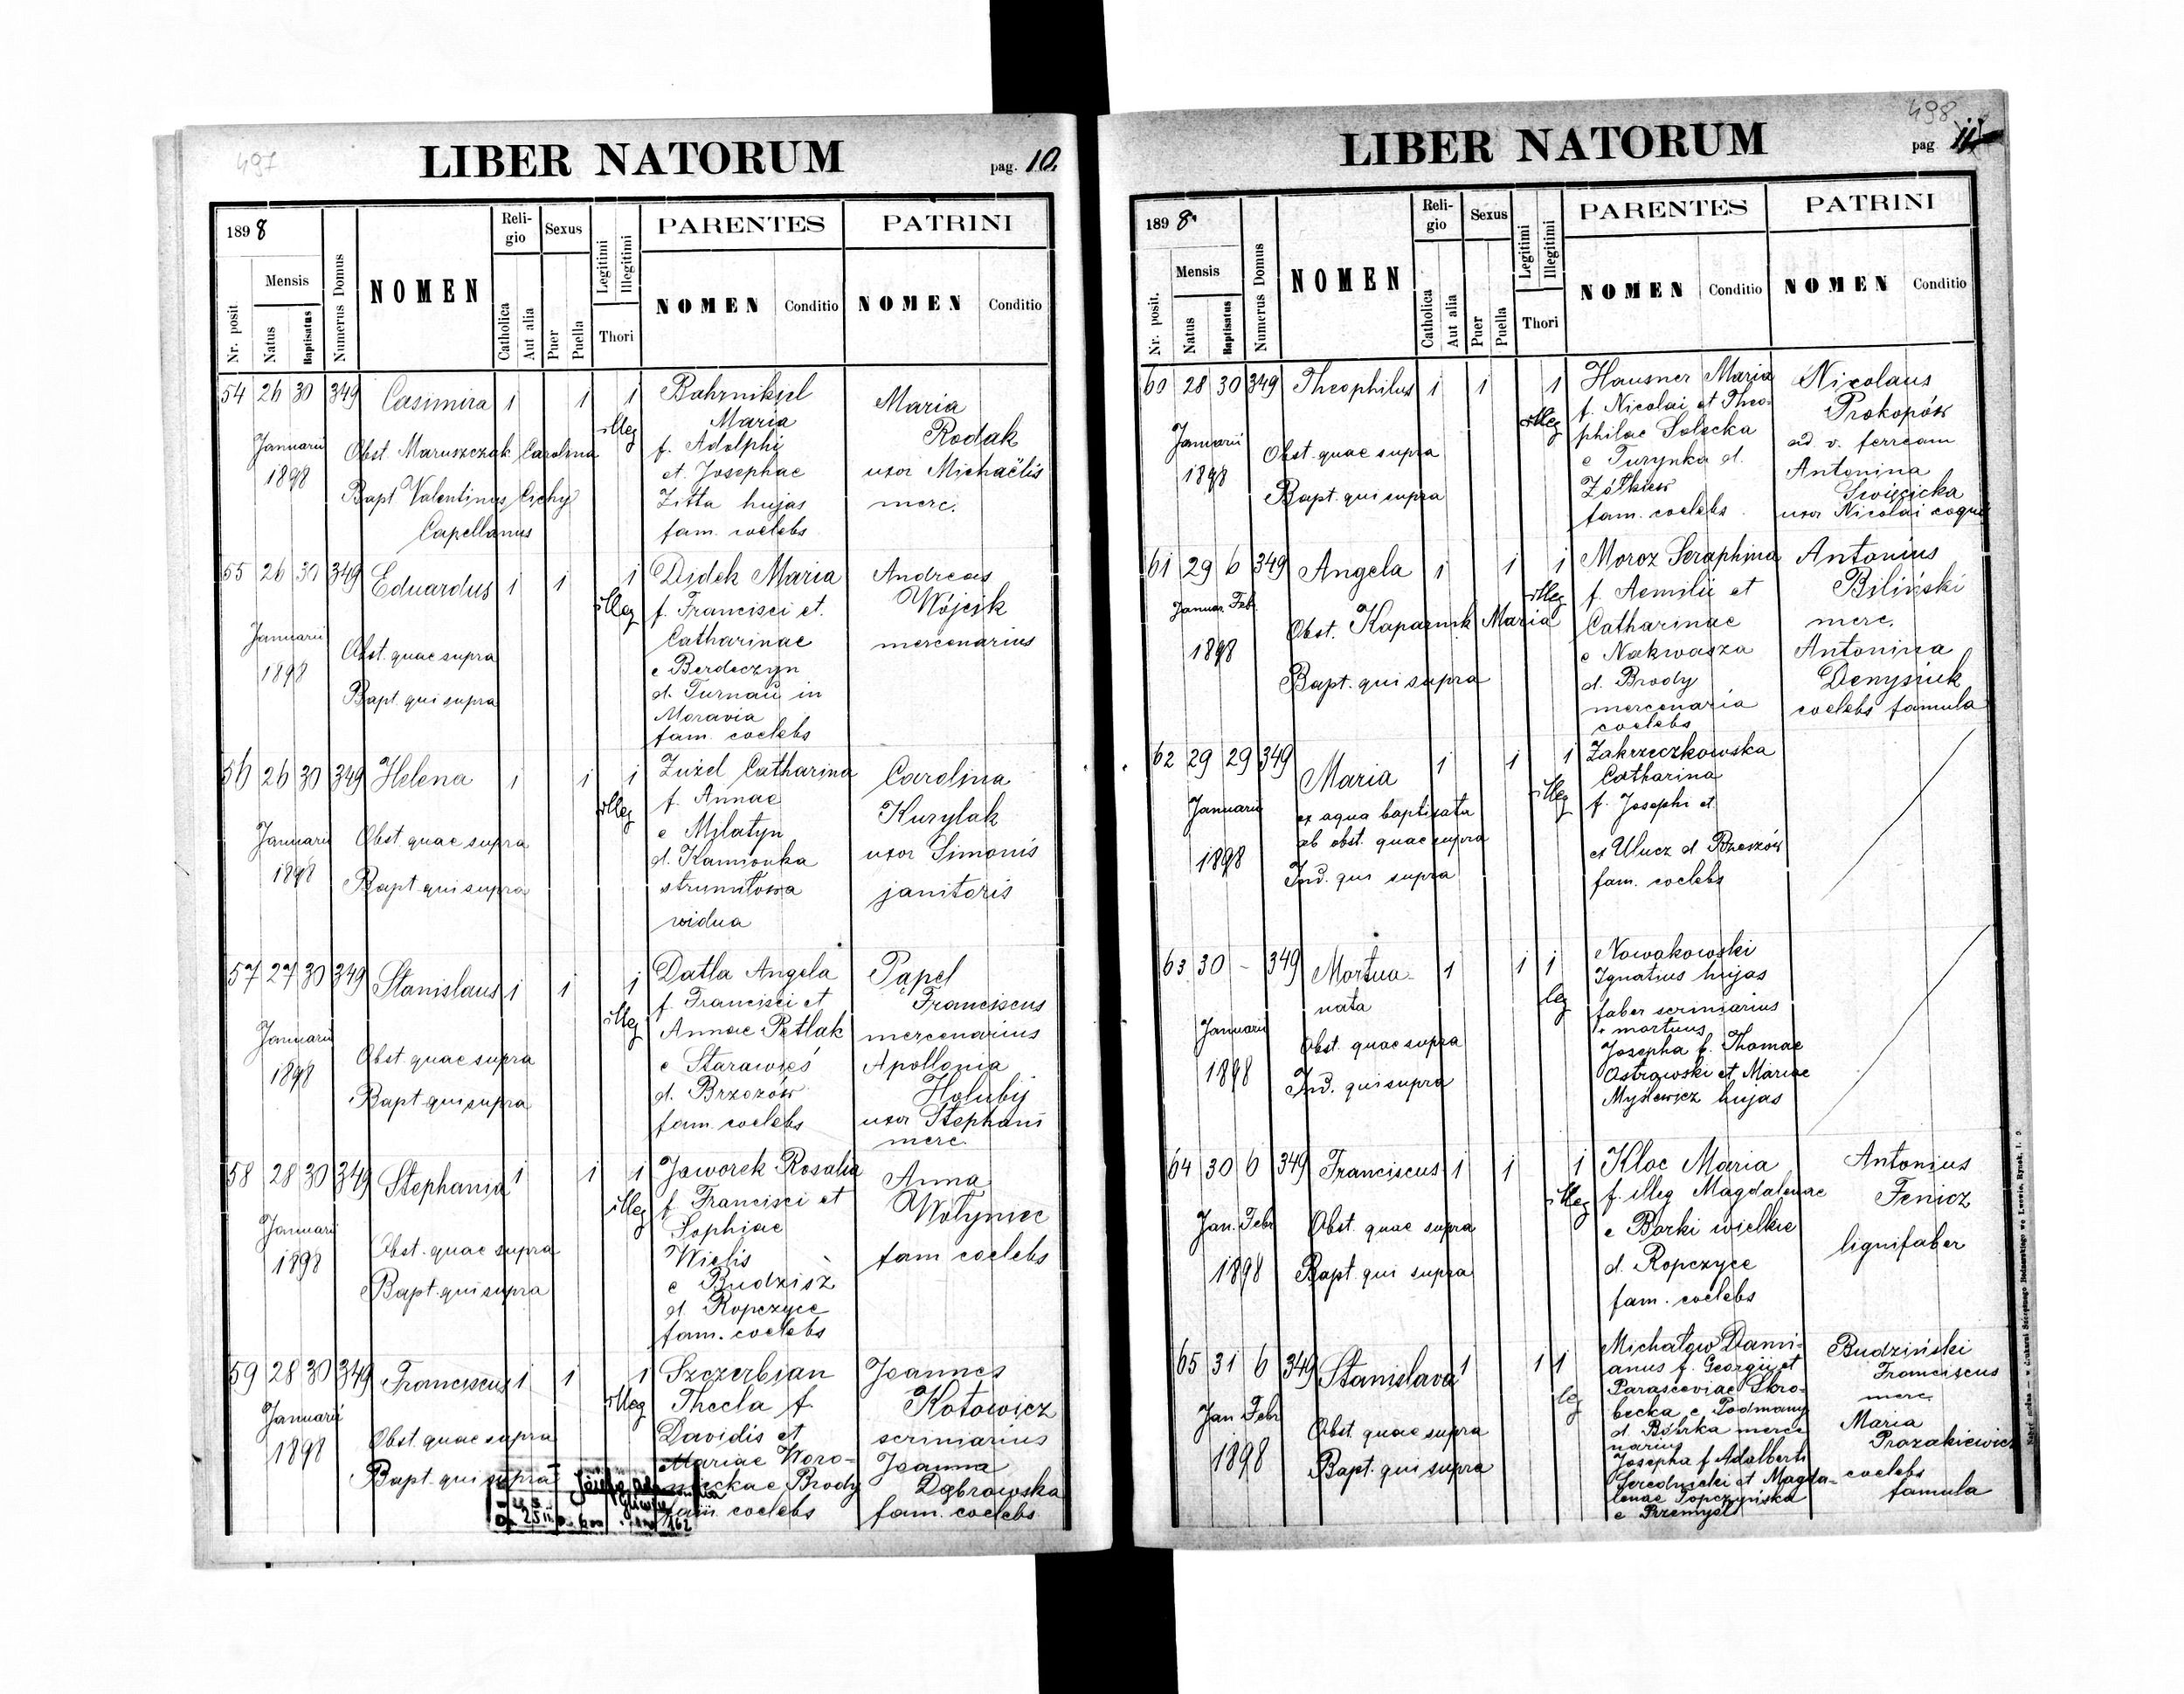 497
LIBER NATORUM
pag. 10.
1898
Nr. posit
Mensis
Natus
Baptisatus
Numerus Domus
NOMEN
Reli-
gio
Catholica
Aut alia
Sexus
Puer
Puella
Legitimi
Illegitimi
Thori
PARENTES
NOMEN
Conditio
PATRINI
NOMEN
Conditio
54 26 30 349 Casimira 1 1 1
illeg
Januarii
1898
Obst Maruszczak Carolina
Bapt Valentinus Cichy
Capellanus
Maria
f. Adolphi
et Josephae
Zitta hujas
fam. coelebs
Maria
Rodak
uxor Michaëlis
merc.
55 26 30 349 Eduardus 1 1 1
illeg
Januarii
1898
Obst. quae supra
Bapt. qui supra
Didek Maria
f. Francisci et
Catharinae
e Berdeczyn
d. Turnau in
Moravia
fam. coelebs
Andreas
Wójcik
mercenarius
56 26 30 349 Helena 1 1 1
illeg
Januarii
1898
Obst quae supra
Bapt qui supra
Zużel Catharina
f. Annae
e Milatyn
d. Kamionka
strumiłowa
vidua
Carolina
Kurylak
uxor Simonis
janitoris
57 27 30 349 Stanislaus 1 1 1
illeg
Januarii
1898
Obst quae supra
Bapt qui supra
Datla Angela
f. Francisci et
Annae Petlak
e Starawieś
d. Brzozów
fam. coelebs
Papel
Franciscus
mercenarius
Apollonia
Holubij
uxor Stephani
merc.
58 28 30 349 Stephania 1 1 1
illeg
Januarii
1898
Obst. quae supra
Bapt. qui supra
Jaworek Rosalia
f. Francisci et
Sophiae
Wielis
e Budzisz
d. Ropczyce
fam. coelebs
Anna
Wołyniec
fam coelebs
59 28 30 349 Franciscus 1 1 1
illeg
Januarii
1898
Obst. quae supra
Bapt. qui supra
Szczerbian
Thecla f.
Davidis et
Mariae Woro-
Brody
fam. coelebs
Joannes
Kotowicz
scriniarius
Joanna
Dąbrowska
fam. coelebs
162
498
LIBER NATORUM
pag 11
1898
Nr. posit.
Mensis
Natus
Baptisatus
Numerus Domus
NOMEN
Reli-
gio
Catholica
Aut alia
Sexus
Puer
Puella
Legitimi
Illegitimi
Thori
PARENTES
NOMEN
Conditio
PATRINI
NOMEN
Conditio
60 28 30 349 Theophilus 1 1 1
illeg
Januarii
1898
Obst. quae supra
Bapt. qui supra
Hausner Maria
f. Nicolai et Theo-
philae Solecka
e Turynka d.
Żółkiew
fam. coelebs
Nicolaus
Prokopów
ad v. ferream
Antonina
Święcicka
uxor Nicolai coqui
61 29 6 349 Angela 1 1 1
illeg
Januar. Febr.
1898
Obst. Kaparnik Maria
Bapt. qui supra
Moroz Seraphina
f. Aemilii et
Catharinae
e Nakwasza
d. Brody
mercenaria
coelebs
Antonius
Biliński
merc.
Antonina
Denysiuk
coelebs famula
62 29 29 349 Maria 1 1 1
illeg
Januarii
1898
ex aqua baptisata
ab obst. quae supra
Ind. qui supra
Zakrzeczkowska
Catharina
f. Josephi et
ex Ulucz d Brzozów
fam. coelebs
63 30 - 349 Mortua 1 1 1
nata
leg
Januarii
1898
Obst. quae supra
Ind. qui supra
Nowakowski
Ignatius hujas
faber scriniarius
+ mortuus
Josepha f. Thomae
Ostrowski et Mariae
Mysłewicz hujas
64 30 6 349 Franciscus 1 1 1
illeg
Jan. Febr
1898
Obst. quae supra
Bapt. qui supra
Kloc Maria
f. illeg Magdalenae
e Borki wielkie
d. Ropczyce
fam. coelebs
Antonius
Fenicz
lignifaber
65 31 6 349 Stanislava 1 1 1
leg
Jan Febr
1898
Obst. quae supra
Bapt. qui supra
Michałow Dami-
anus f. Georgii et
Parasceviae Skro-
becka e Podmany
d. Bóbrka merce
narius
Josepha f Adalberti
Serednicki et Magda-
lenae Topczyńska
e Przemyśl
Budziński
Franciscus
merc.
Maria
Prozakiewicz
coelebs
famula